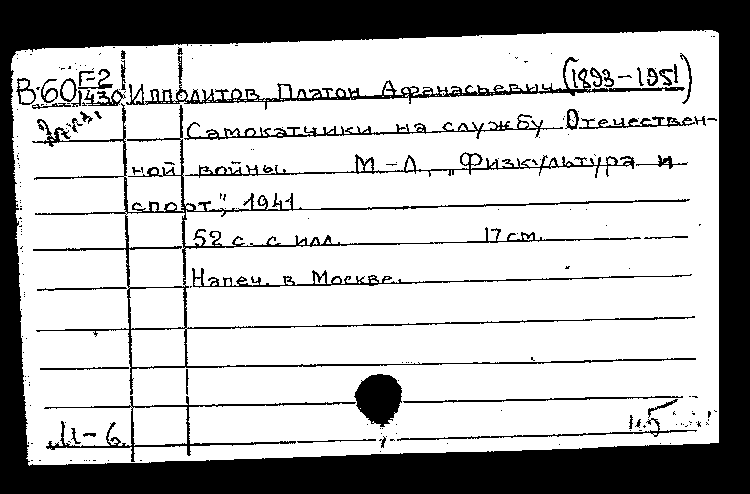 В60 F-2/1430 Ипполитов, Платон Афанасьевич (1893-1951)
Самокатчики на службу Отечествен-
ной войны. М-Л, "Физкультура и
спорт", 1941.
52 с. с илл. 17 см.
Напеч. в Москве.
М-6